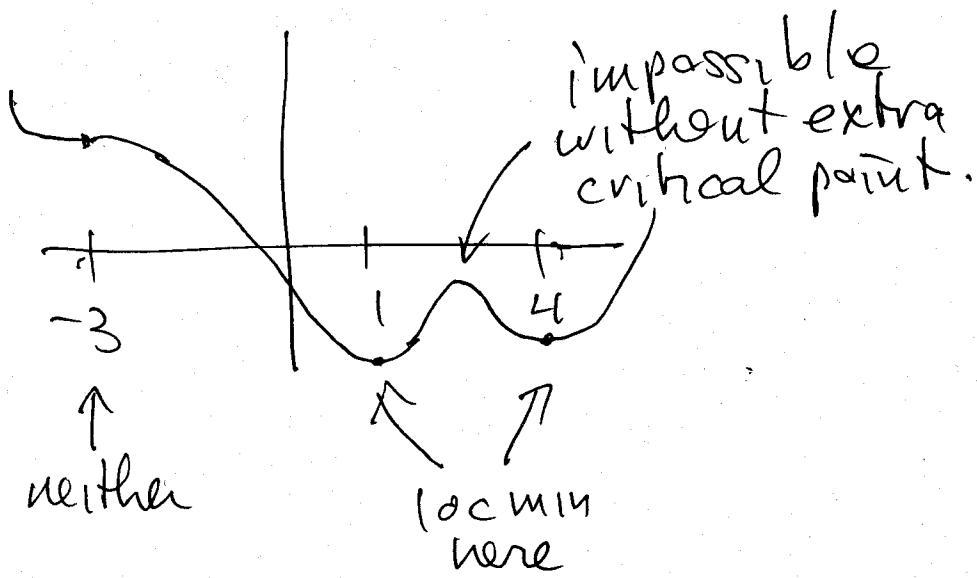 impossible
without extra
critical point.
-3
1
4
neither
loc min
here